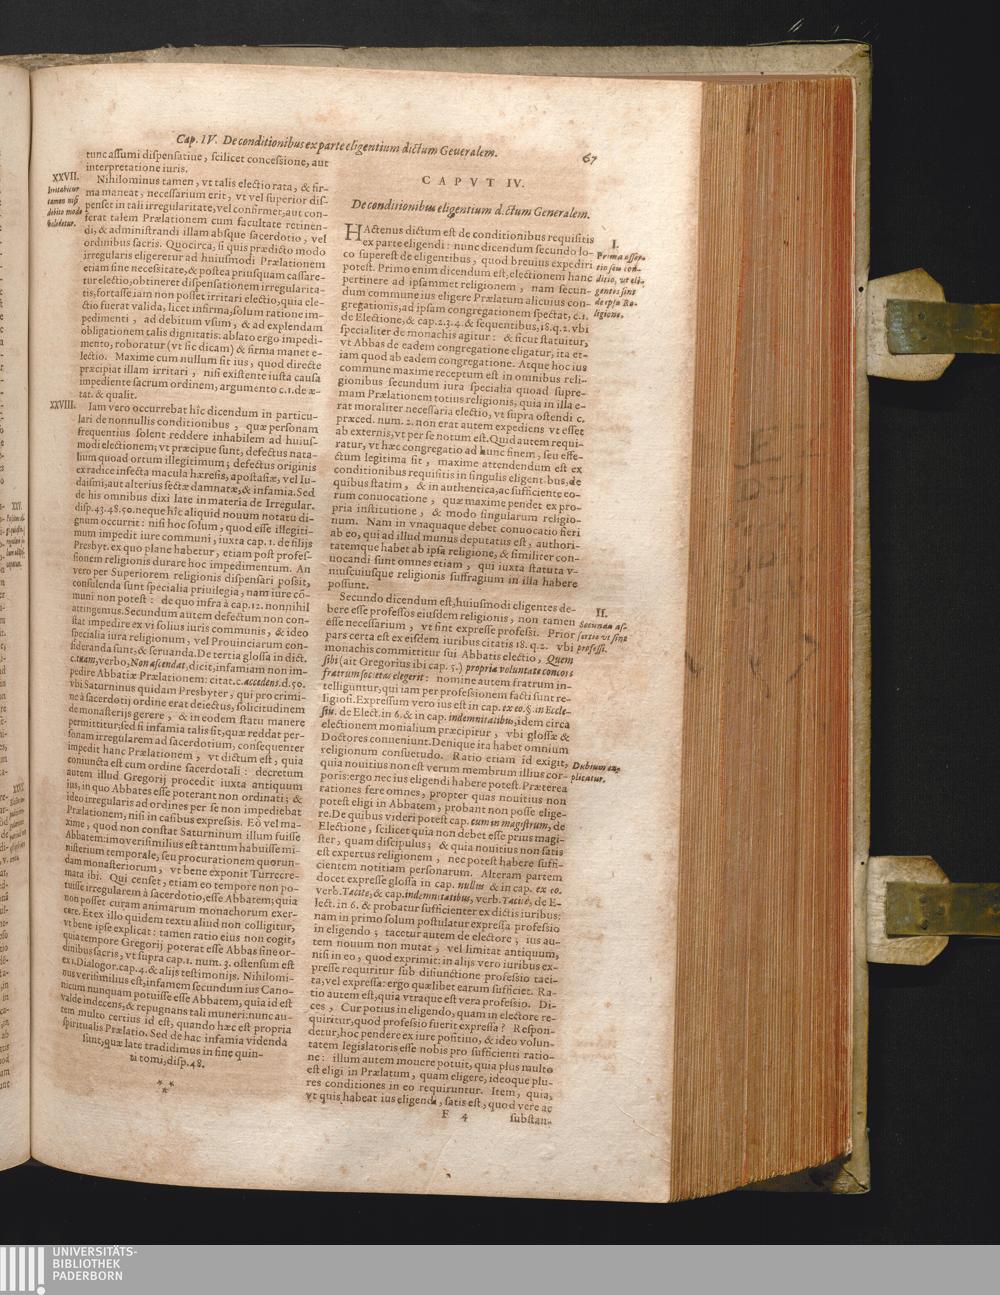 Cap. IV. De conditionibus ex parte eligentium dictum Generalem.
67
tunc assumi dispensatiue, scilicet concessione, aut
interpretatione iuris.
XXVII.
Irritabitur
tamen nisi
debito modo
Nihilominus tamen, vt talis electio rata, & fir-
ma maneat, necessarium erit, vt vel superior dis-
penset in tali irregularitate, vel confirmet, aut con-
ferat talem Prælationem cum facultate retinen-
di, & administrandi illam absque sacerdotio, vel
ordinibus sacris. Quocirca, si quis prædicto modo
irregularis eligeretur ad huiusmodi Prælationem
etiam sine necessitate, & postea priusquam cassare-
tur electio, obtineret dispensationem irregularita-
tis, fortasse iam non posset irritari electio, quia ele-
ctio fuerat valida, licet infirma, solum ratione im-
pedimenti, ad debitum vsum, & ad explendam
obligationem talis dignitatis: ablato ergo impedi-
mento, roboratur (vt sic dicam) & firma manet e-
lectio. Maxime cum nullum sit ius, quod directe
præcipiat illam irritari, nisi existente iusta causa
impediente sacrum ordinem, argumento c.1. de æ-
tat. & qualit.
XXVIII.
Iam vero occurrebat hîc dicendum in particu-
lari de nonnullis conditionibus, quæ personam
frequentius solent reddere inhabilem ad huius-
modi electionem; vt præcipue sunt, defectus nata-
lium quoad ortum illegitimum; defectus originis
ex radice infecta macula hæresis, apostasiæ, vel Iu-
daismi, aut alterius sectæ damnatæ, & infamia. Sed
de his omnibus dixi late in materia de Irregular.
disp. 43. 48. 50. neque hîc aliquid nouum notatu di-
gnum occurrit: nisi hoc solum, quod esse illegiti-
mum impedit iure communi, iuxta cap. 1. de filijs
Presbyt. ex quo plane habetur, etiam post profes-
sionem religionis durare hoc impedimentum. An
vero per Superiorem religionis dispensari possit,
consulenda sunt specialia priuilegia, nam iure cō-
muni non potest: de quo infra à cap. 12. nonnihil
attingemus. Secundum autem defectum non con-
stat impedire ex vi solius iuris communis, & ideo
specialia iura religionum, vel Prouinciarum con-
sideranda sunt, & seruanda. De tertia glossa in dict.
c. tuam, verbo, Non ascendat, dicit, infamiam non im-
pedire Abbatiæ Prælationem: citat. c. accedens. d. 50.
vbi Saturninus quidam Presbyter, qui pro crimi-
ne à sacerdotij ordine erat deiectus, solicitudinem
de monasterijs gerere, & in eodem statu manere
permittitur; sed si infamia talis sit, quæ reddat per-
sonam irregularem ad sacerdotium, consequenter
impedit hanc Prælationem, vt dictum est, quia
coniuncta est cum ordine sacerdotali: decretum
autem illud Gregorij procedit iuxta antiquum
ius, in quo Abbates esse poterant non ordinati; &
ideo irregularis ad ordines per se non impediebat
Prælationem, nisi in casibus expressis. Eò vel ma-
xime, quod non constat Saturninum illum fuisse
Abbatem: imo verisimilius est tantum habuisse mi-
nisterium temporale, seu procurationem quorun-
dam monasteriorum, vt bene exponit Turrecre-
mata ibi. Qui censet, etiam eo tempore non po-
tuisse irregularem à sacerdotio, esse Abbatem; quia
non posset curam animarum monachorum exer-
cere. Et ex illo quidem textu aliud non colligitur,
vt bene ipse explicat: tamen ratio eius non cogit,
quia tempore Gregorij poterat esse Abbas sine or-
dinibus sacris, vt supra cap. 1. num. 3. ostensum est
ex 1. Dialogor. cap. 4. & alijs testimonijs. Nihilomi-
nus verisimilius est, infamem secundum ius Cano-
nicum nunquam potuisse esse Abbatem, quia id est
valde indecens, & repugnans tali muneri: nunc au-
tem multo certius id est, quando hæc est propria
spiritualis Prælatio. Sed de hac infamia videnda
sunt, quæ late tradidimus in fine quin-
ti tomi, disp. 48.
CAPVT IV.
De conditionibus eligentium dictum Generalem.
HActenus dictum est de conditionibus requisitis
ex parte eligendi: nunc dicendum secundo lo-
co superest de eligentibus, quod breuius expediri
potest. Primo enim dicendum est, electionem hanc
pertinere ad ipsammet religionem, nam secun-
dum commune ius eligere Prælatum alicuius con-
gregationis, ad ipsam congregationem spectat, c. 1.
de Electione, & cap. 2. 3. 4. & sequentibus, 18. q. 2. vbi
specialiter de monachis agitur: & sicut statuitur,
vt Abbas de eadem congregatione eligatur, ita et-
iam quod ab eadem congregatione. Atque hoc ius
commune maxime receptum est in omnibus reli-
gionibus secundum iura specialia quoad supre-
mam Prælationem totius religionis, quia in illa e-
rat moraliter necessaria electio, vt supra ostendi c.
præced. num. 2. non erat autem expediens vt esset
ab externis, vt per se notum est. Quid autem requi-
ratur, vt hæc congregatio ad hunc finem, seu effe-
ctum legitima sit, maxime attendendum est ex
conditionibus requisitis in singulis eligentibus, de
quibus statim, & in authentica, ac sufficiente eo-
rum conuocatione, quæ maxime pendet ex pro-
pria institutione, & modo singularum religio-
num. Nam in vnaquaque debet conuocatio fieri
ab eo, qui ad illud munus deputatus est, authori-
tatemque habet ab ipsa religione, & similiter con-
uocandi sunt omnes etiam, qui iuxta statuta v-
niuscuiusque religionis suffragium in illa habere
possunt.
I.
Prima asser-
tio seu con-
ditio, vt eli-
gentes sint
de ipsa Re-
ligione.
Secundo dicendum est, huiusmodi eligentes de-
bere esse professos eiusdem religionis, non tamen
esse necessarium, vt sint expresse professi. Prior
pars certa est ex eisdem iuribus citatis 18. q. 2. vbi
monachis committitur sui Abbatis electio, Quem
sibi (ait Gregorius ibi cap. 5.) propria voluntate concors
fratrum societas elegerit: nomine autem fratrum in-
telliguntur, qui iam per professionem facti sunt re-
ligiosi. Expressum vero ius est in cap. ex eo. §. in Eccle-
siis. de Elect. in 6. & in cap. indemnitatibus, idem circa
electionem monialium præcipitur, vbi glossæ &
Doctores conueniunt. Denique ita habet omnium
religionum consuetudo. Ratio etiam id exigit,
quia nouitius non est verum membrum illius cor-
poris: ergo nec ius eligendi habere potest. Præterea
rationes fere omnes, propter quas nouitius non
potest eligi in Abbatem, probant non posse elige-
re. De quibus videri potest cap. cum in magistrum, de
Electione, scilicet quia non debet esse prius magi-
ster, quam discipulus; & quia nouitius non satis
est expertus religionem, nec potest habere suffi-
cientem notitiam personarum. Alteram partem
docet expresse glossa in cap. nullus & in cap. ex eo.
verb. Tacite, & cap. indemnitatibus, verb. Tacitè, de E-
lect. in 6. & probatur sufficienter ex dictis iuribus:
nam in primo solum postulatur expressa professio
in eligendo; tacetur autem de electore; ius au-
tem nouum non mutat, vel limitat antiquum,
nisi in eo, quod exprimit: in alijs vero iuribus ex-
presse requiritur sub disiunctione professio taci-
ta, vel expressa: ergo quælibet earum sufficiet. Ra-
tio autem est, quia vtraque est vera professio. Di-
ces, Cur potius in eligendo, quam in electore re-
quiritur, quod professio fuerit expressa? Respon-
detur, hoc pendere ex iure positiuo, & ideo volun-
tatem legislatoris esse nobis pro sufficienti ratio-
ne: illum autem mouere potuit, quia plus multo
est eligi in Prælatum, quam eligere, ideoque plu-
res conditiones in eo requiruntur. Item, quia,
vt quis habeat ius eligendi, satis est, quod vere ac
II.
Secunda as-
sertio vt sint
professi.
Dubium ex-
plicatur.
F 4
substan-
UNIVERSITÄTS-
BIBLIOTHEK
PADERBORN